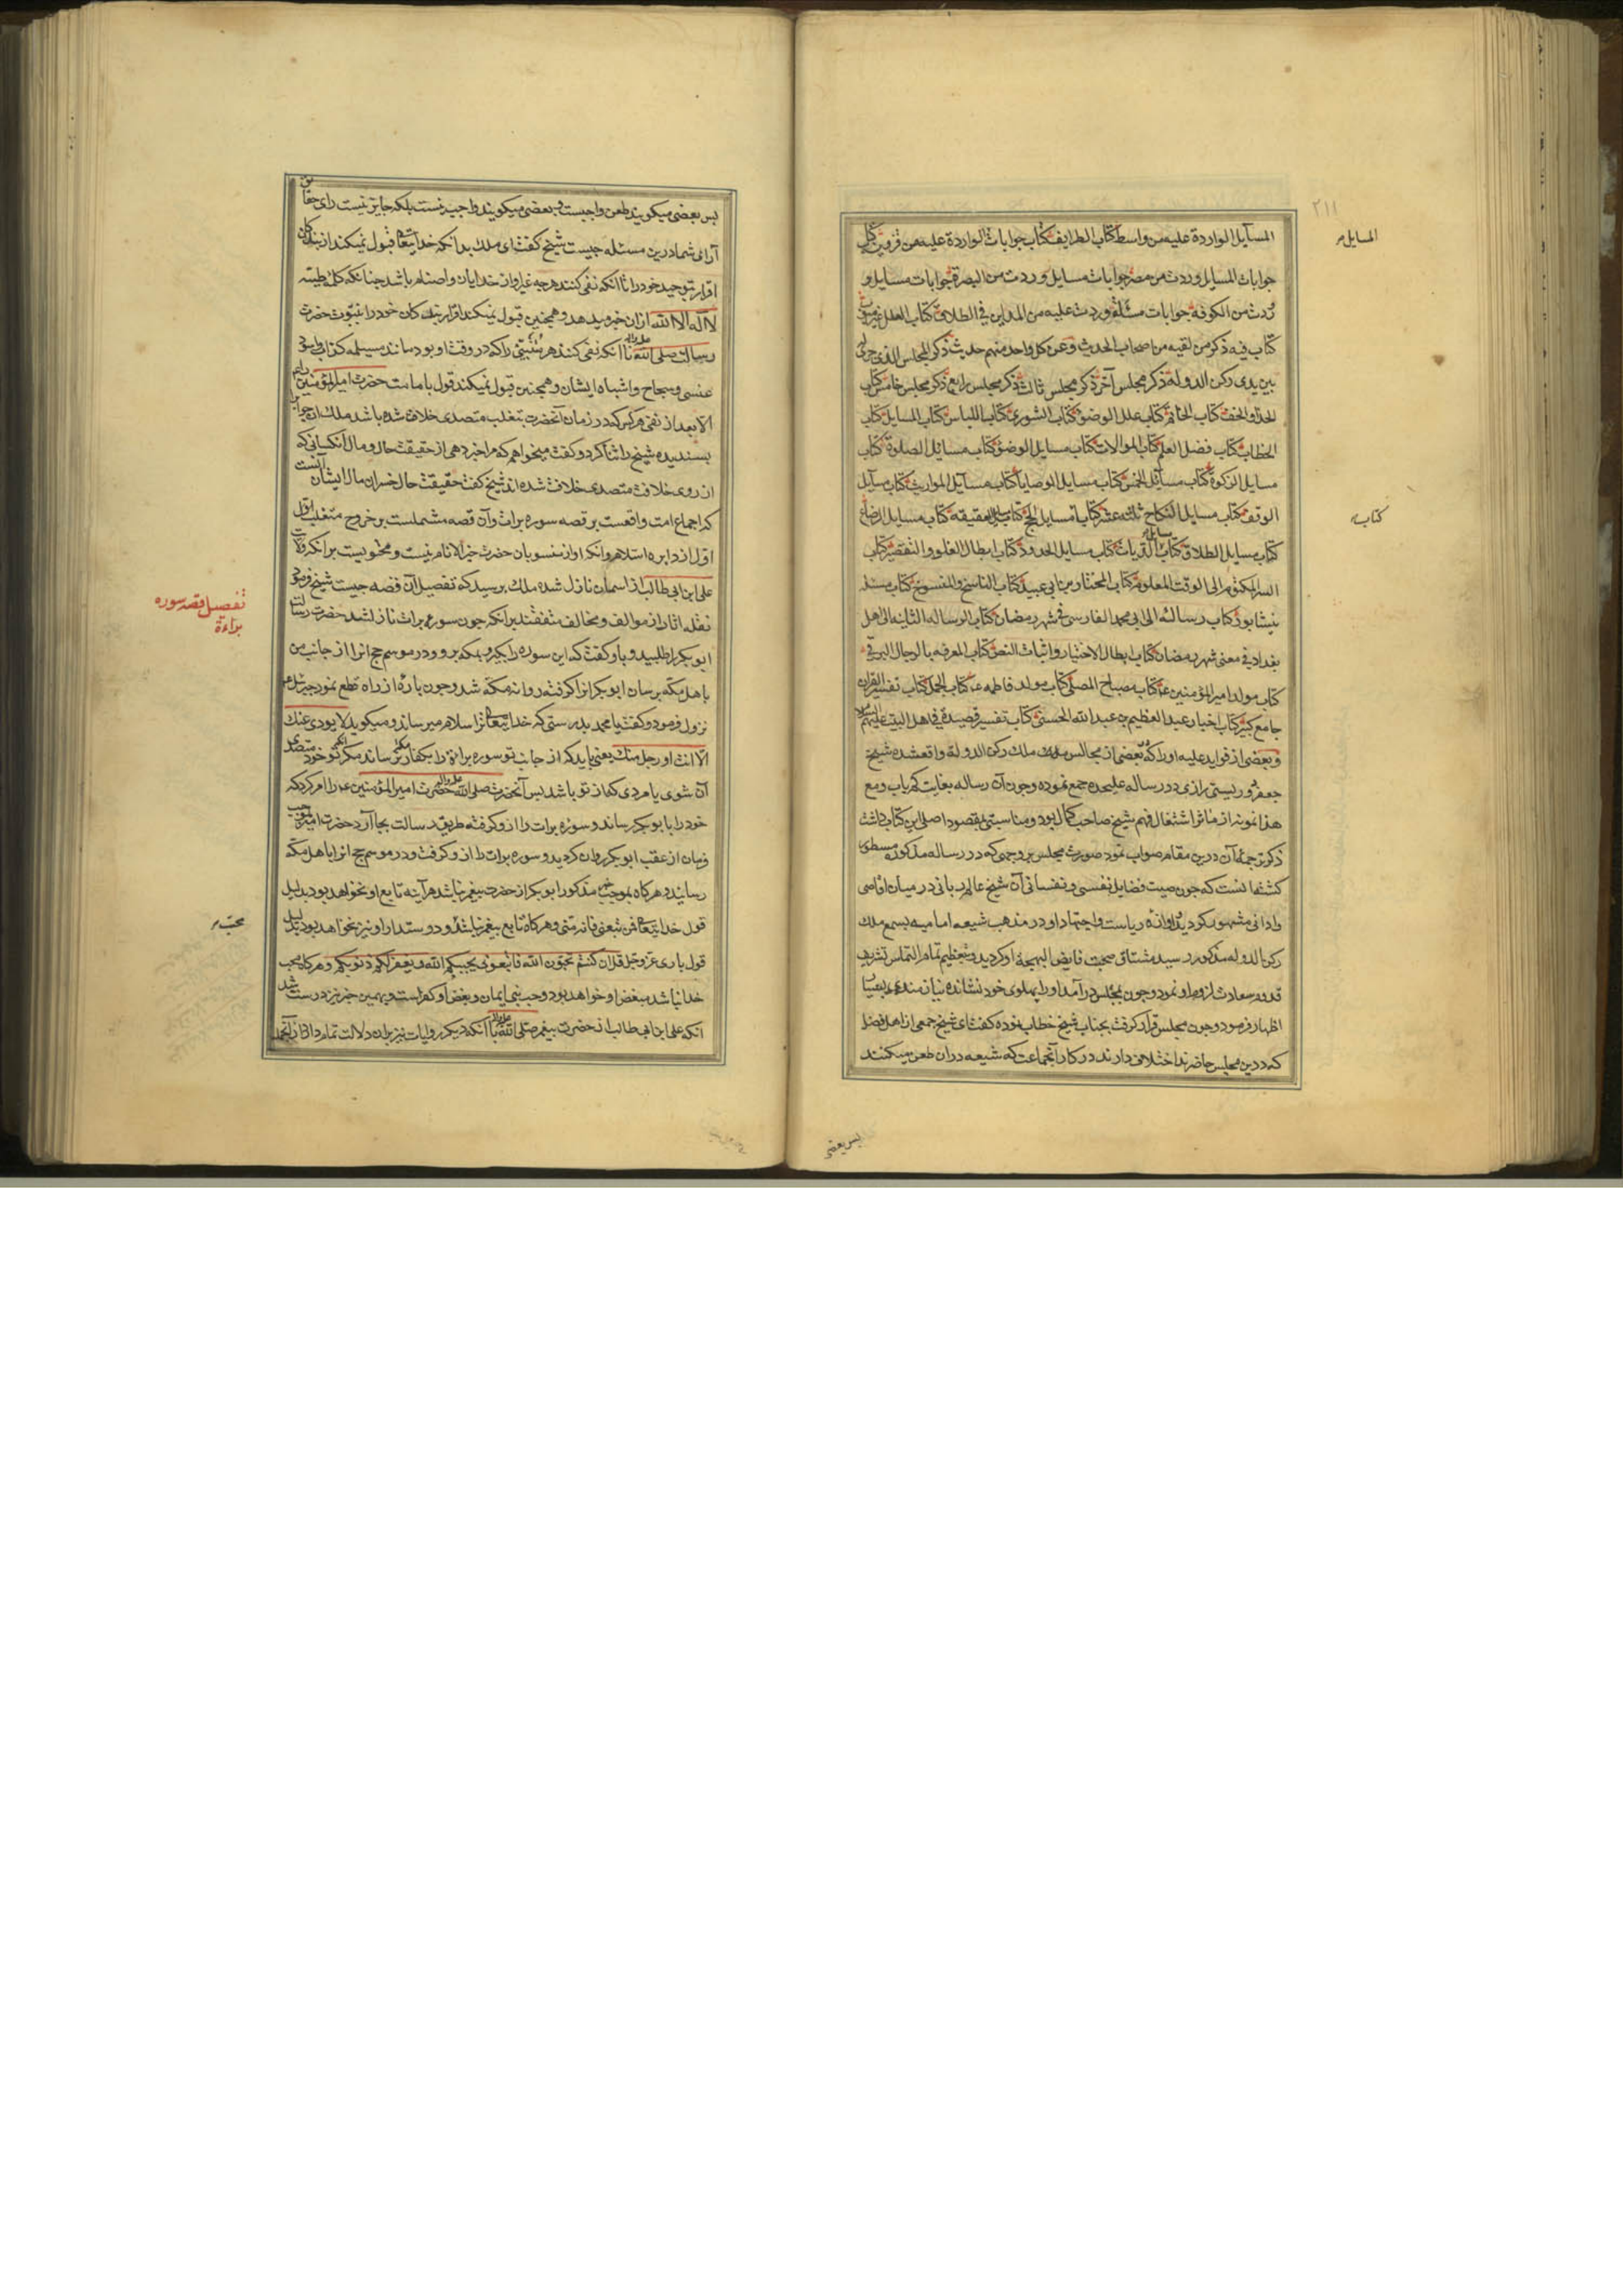 ۲۱۱
المسایل الواردة علیه من واسط کتاب الطرایف کتاب جوابات الواردة علیه من قزوین کتاب
المسایل
جوابات المسایل وردت من مصر جوابات مسایل وردت من البصرة جوابات مسایل و
ردت من الکوفة جوابات مسئلة وردت علیه من المداین فی الطلاق کتاب العلل غیر مبوب
کتاب فیه ذکر من لقیه من اصحاب الحدیث و عن کل واحد منهم حدیث ذکر المجلس الذی جری
بین یدی رکن الدولة ذکر مجلس آخر ذکر مجلس ثالث ذکر مجلس رابع ذکر مجلس خامس کتاب
الحذاء و الخف کتاب الخاتم کتاب علل الوضوء کتاب الشوری کتاب اللباس کتاب المسایل کتاب
الخطاب کتاب فضل العلم کتاب الموالات کتاب مسایل الوضوء کتاب مسائل الصلوة کتاب
مسایل الزکوة کتاب مسائل الخمس کتاب مسایل الوصایا کتاب مسائل المواریث کتاب مسایل
الوقف کتاب مسایل النکاح ثلثه عشر کتابا مسایل الحج کتاب مسایل العقیقة کتاب مسایل الرضاع
کتاب
کتاب مسایل الطلاق کتاب مسایل الدیات کتاب مسایل الحدود کتاب ابطال الغلو و التقصیر کتاب
السر المکتوم الی الوقت المعلوم کتاب المختار بن ابی عبید کتاب الناسخ و المنسوخ کتاب مسئله
نیشابور کتاب رسالته الی ابی محمد الفارسی فی شهر رمضان کتاب الرساله الثانیه الی اهل
بغداد فی معنی شهر رمضان کتاب ابطال الاختیار و اثبات النص کتاب المعرفه بالرجال البرقی
کتاب مولد امیر المؤمنین ع کتاب مصباح المصلی کتاب مولد فاطمه ع کتاب الجمل کتاب تفسیر القران
جامع کبیر کتاب اخبار عبد العظیم بن عبد الله الحسنی کتاب تفسیر قصیدة فی اهل البیت علیهم السلام
و بعضی از فواید علیه او را که در بعضی از مجالس ملک رکن الدوله واقع شده شیخ
جعفر دوریستی رازی در رساله علیحده جمع نموده و چون آن رساله بغایت کمیاب و مع
هذا نمونه از مآثر اشتغال فهم شیخ صاحب کمال بود و مناسبتی بمقصود اصلی این کتاب داشت
ذکر ترجمه آن درین مقام صواب نمود صورت مجلس بر وجهی که در رساله مذکوره مسطور
کشته انست که چون صیت فضایل نفسی و نفسانی آن شیخ عالم ربانی در میان اقاصی
و ادانی مشهور کردید و آوازه ریاست و اجتهاد او در مذهب شیعه امامیه بسمع ملک
رکن الدوله مذکور رسید مشتاق صحبت فایض البهجة او کردید و بتعظیم تمام التماس تشریف
قدوم سعادت لزوم او نمود و چون بمجلس درآمد او را پهلوی خود نشانده نیازمندی بسیار
اظهار فرمود و چون مجلس قرار کرفت بجناب شیخ خطاب نموده کفت ای شیخ جمعی از اهل فضل
که درین مجلس حاضرند اختلاف دارند در کار آنجماعت که شیعه در ان طعن میکنند
پس بعضی
پس بعضی میکویند طعن واجبست و بعضی میکویند واجب نیست بلکه جایز نیست رای حقایق
آرای شما درین مسئله چیست شیخ کفت ای ملک بدانکه خدایتعالی قبول نمیکند از بندکان
اقرار بتوحید خود را تا آنکه نفی کنند هر چه غیر او از خدایان و اصنام باشد چنانکه کلمه طیبه
لا اله الا الله از ان خبر میدهد و همچنین قبول نمیکند اقرار بندکان خود را بنبوت حضرت
رسالت صلی الله علیه و اله تا آنکه نفی کنند هر متنبئی را که در وقت او بود مانند مسیلمه کذاب و اسود
عنسی و سجاح و اشباه ایشان و همچنین قبول نمیکند قول بامامت حضرت امیر المؤمنین را
الا بعد از نفی هر کس که در زمان آنحضرت بتغلب متصدی خلافت شده باشد ملک ان جواب را
پسندیده شیخ را ثنا کرد و کفت میخواهم که مرا خبر دهی از حقیقت حال و مال انکسانی که
از روی خلافت متصدی خلافت شده اند شیخ کفت حقیقت حال خسران مال ایشان آنست
که اجماع امت واقعست بر قصه سوره برات و آن قصه مشتملست بر خروج متغلب اول
اول از دایره اسلام و انکه او از منسوبان حضرت خیر الانام نیست و محتویست بر انکه ولایت
علی ابن ابی طالب از اسمان نازل شده ملک پرسید که تفصیل آن قصه چیست شیخ فرمود
تفصیل قصه سوره براءة
نقله اثار از موالف و مخالف متفقند بر انکه چون سوره برات نازل شد حضرت رسالت
ابو بکر را طلبید و با و کفت که این سوره را بکیر و بمکه برو و در موسم حج انرا از جانب من
باهل مکه برسان ابو بکر انرا کرفته روانه مکه شد و چون پاره از راه قطع نمود جبرئیل
نزول فرمود و کفت یا محمد بدرستی که خدایتعالی ترا سلام میرساند و میکوید لا یودی عنک
الا انت او رجل منک یعنی باید که از جانب تو سوره براءة را بکفار مکه نرساند مکر آنکه تو خود متصدی
آن شوی یا مردی که از تو باشد پس آنحضرت صلی الله علیه و اله حضرت امیر المؤمنین ع را امر کرد که
خود را بابو بکر رساند و سوره برات را از و کرفته طریق رسالت بجا آرد حضرت امیر بموجب
فرمان از عقب ابو بکر روان کردید و سوره برات را از و کرفت و در موسم حج انرا باهل مکه
رسانید و هر کاه بموجب خبر مذکور ابو بکر از حضرت پیغمبر نباشد هر آینه تابع او نخواهد بود بدلیل
قول خدایتعالی فمن تبعنی فانه منی و هر کاه تابع پیغمبر نباشد و دوستدار او نیز نخواهد بود بدلیل
محب
قول باری عز و جل قل ان کنتم تحبون الله فاتبعونی یحببکم الله و یغفر لکم ذنوبکم و هر کاه محب
خدا نباشد مبغض او خواهد بود و حب نبی ایمان و بغض او کفر است و بهمین خبر نیز درست شد
آنکه علی ابن ابی طالب از حضرت پیغمبر صلی الله علیه و اله با آنکه دیکر روایات نیز بران دلالت تمام دارد از آنجمله